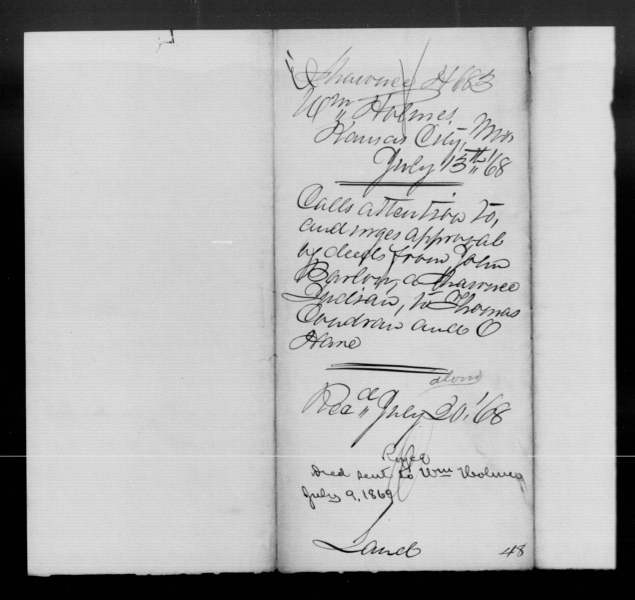 Shawnee H 683
Wm Holmes,
Kansas City, Mo
July 13th '68
Calls attention to,
and urges approval
of deeds from John
a Shawnee
Indian, to Thomas
and O
Hane
Recd July 20, '68
Deed sent to Wm Holmes
July 9, 1869
Land
48